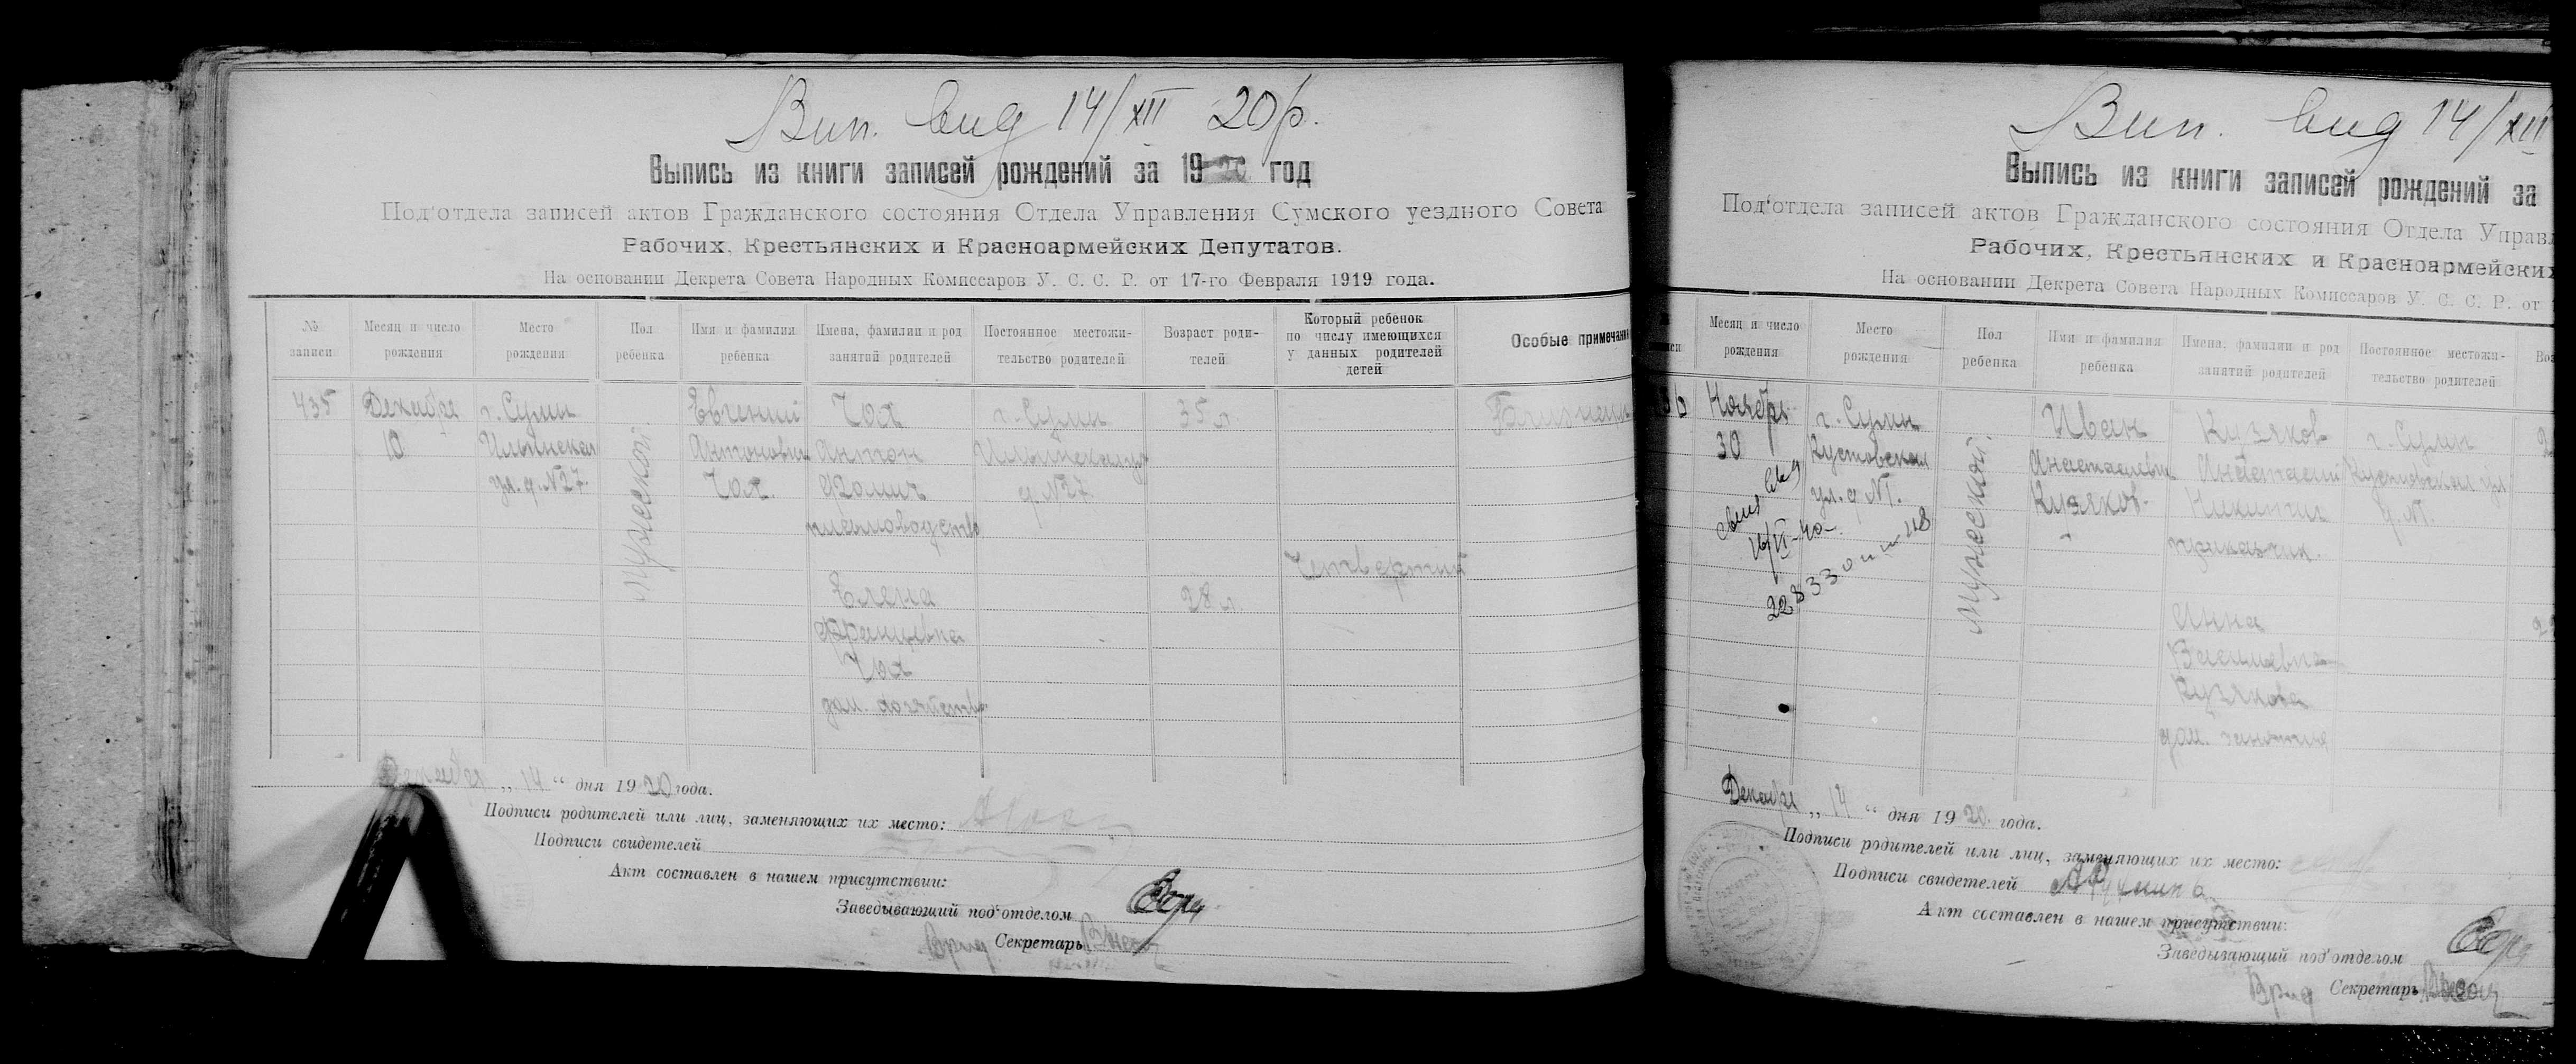 Вип. вид 14/XII 20р.
Выпись из книги записей рождений за 1920 год
Под'отдела записей актов Гражданского состояния Отдела Управления Сумского уездного Совета
Рабочих, Крестьянских и Красноармейских Депутатов.
На основании Декрета Совета Народных Комиссаров У. С. С. Р. от 17-го Февраля 1919 года.
№ записи
Месяц и число рождения
Место рождения
Пол ребенка
Имя и фамилия ребенка
Имена, фамилии и род занятий родителей
Постоянное местожительство родителей
Возраст родителей
Который ребенок по числу имеющихся у данных родителей детей
Особые примечания
435
Декабря
10
г. Сумы
Ильинская
ул. д. №27.
мужской.
Евгений
Антонович
Чох
Чох
Антон
Фомич
г. Сумы
Ильинская ул
д. №27
35 л
Четвертый
Елена
Францевна
Чох
дом. хозяйство
28 л.
Декабря „ 14 “ дня 1920 года.
Подписи родителей или лиц, заменяющих их место:
Подписи свидетелей
Акт составлен в нашем присутствии:
Заведывающий под'отделом
Врид Секретарь
Вип. вид 14/XII
Выпись из книги записей рождений за
Под'отдела записей актов Гражданского состояния Отдела Управл
Рабочих, Крестьянских и Красноармейских
На основании Декрета Совета Народных Комиссаров У. С. С. Р. от
Месяц и число рождения
Место рождения
Пол ребенка
Имя и фамилия ребенка
Имена, фамилии и род занятий родителей
Постоянное местожительство родителей
Воз
Ноября
30
г. Сумы
Кустовская
ул. д №1.
мужской.
Иван
Анастасиевич
Кузяков
Кузяков
Анастасий
Никитич
приказчик.
г. Сумы
Кустовская ул
д. №1.
Анна
Васильевна
Кузякова
дом. занятия
Декабря „ 14 “ дня 1920 года.
Подписи родителей или лиц, заменяющих их место:
Подписи свидетелей
Акт составлен в нашем присутствии:
Заведывающий под'отделом
Врид Секретарь